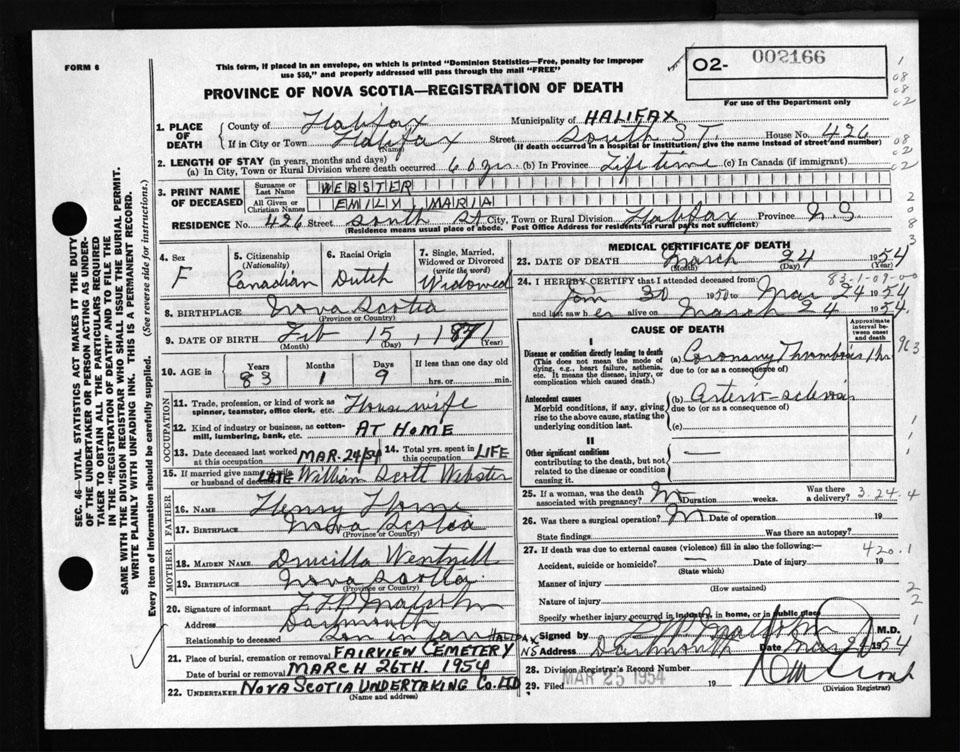 FORM 6
This form, if placed in an envelope, on which is printed "Dominion Statistics—Free, penalty for improper use $50," and properly addressed will pass through the mail "FREE"
02- 002166
For use of the Department only
PROVINCE OF NOVA SCOTIA—REGISTRATION OF DEATH
1. PLACE OF DEATH
County of Halifax Municipality of HALIFAX
If in City or Town Halifax (Name) Street South ST. House No. 426
(If death occurred in a hospital or institution, give the name instead of street and number)
2. LENGTH OF STAY (in years, months and days)
(a) In City, Town or Rural Division where death occurred 60 yrs. (b) In Province Life time (c) In Canada (if immigrant)
3. PRINT NAME OF DECEASED
Surname or Last Name WEBSTER
All Given or Christian Names EMILY MARIA
RESIDENCE No. 426 Street South St City, Town or Rural Division Halifax Province N.S.
(Residence means usual place of abode. Post Office Address for residents in rural parts not sufficient)
4. Sex F
5. Citizenship (Nationality) Canadian
6. Racial Origin Dutch
7. Single, Married, Widowed or Divorced (write the word) Widowed
8. BIRTHPLACE Nova Scotia
(Province or Country)
9. DATE OF BIRTH Feb 15, 1871
(Month) (Day) (Year)
10. AGE in Years 83 Months 1 Days 9 If less than one day old hrs. or min.
OCCUPATION
11. Trade, profession, or kind of work as spinner, teamster, office clerk, etc. Housewife
12. Kind of industry or business, as cotton-mill, lumbering, bank, etc. AT HOME
13. Date deceased last worked at this occupation MAR. 24/54 14. Total yrs. spent in this occupation LIFE
15. If married give name of wife or husband of deceased LATE William Scott Webster
FATHER
16. NAME Henry Horne
17. BIRTHPLACE Nova Scotia
(Province or Country)
MOTHER
18. MAIDEN NAME Drucilla
19. BIRTHPLACE Nova Scotia
(Province or Country)
20. Signature of informant Malcolm
Address Dartmouth
Relationship to deceased Son in law
21. Place of burial, cremation or removal FAIRVIEW CEMETERY HALIFAX NS
Date of burial or removal MARCH 26TH. 1954
22. UNDERTAKER NOVA SCOTIA UNDERTAKING CO. LTD
(Name and address)
MEDICAL CERTIFICATE OF DEATH
23. DATE OF DEATH March 24 1954
(Month) (Day) (Year)
83-1-09-00
24. I HEREBY CERTIFY that I attended deceased from
Jan 30 1950 to Mar 24 1954
and last saw her alive on March 24 1954.
CAUSE OF DEATH
Approximate interval between onset and death
I
Disease or condition directly leading to death
(This does not mean the mode of dying, e.g., heart failure, asthenia, etc. It means the disease, injury, or complication which caused death.)
(a) Coronary Thrombosis 1 hr
due to (or as a consequence of)
Antecedent causes
Morbid conditions, if any, giving rise to the above cause, stating the underlying condition last.
(b) Arterio-sclerosis
due to (or as a consequence of)
(c)
II
Other significant conditions contributing to the death, but not related to the disease or condition causing it.
25. If a woman, was the death associated with pregnancy? Duration weeks. Was there a delivery? 3.24.4
26. Was there a surgical operation? Date of operation 19
State findings Was there an autopsy?
27. If death was due to external causes (violence) fill in also the following:—
420.1
Accident, suicide or homicide? Date of injury 19
(State which)
Manner of injury
(How sustained)
Nature of injury
Specify whether injury occurred in industry, in home, or in public place
Signed by Malcolm M.D.
Address Dartmouth Date Mar 26 1954
28. Division Registrar's Record Number
29. Filed MAR 25 1954 19
(Division Registrar)
SEC. 46—VITAL STATISTICS ACT MAKES IT THE DUTY OF THE UNDERTAKER OR PERSON ACTING AS UNDERTAKER TO OBTAIN ALL THE PARTICULARS REQUIRED IN THE "REGISTRATION OF DEATH" AND TO FILE THE SAME WITH THE DIVISION REGISTRAR WHO SHALL ISSUE THE BURIAL PERMIT.
WRITE PLAINLY WITH UNFADING INK. THIS IS A PERMANENT RECORD.
Every item of information should be carefully supplied. (See reverse side for instructions.)